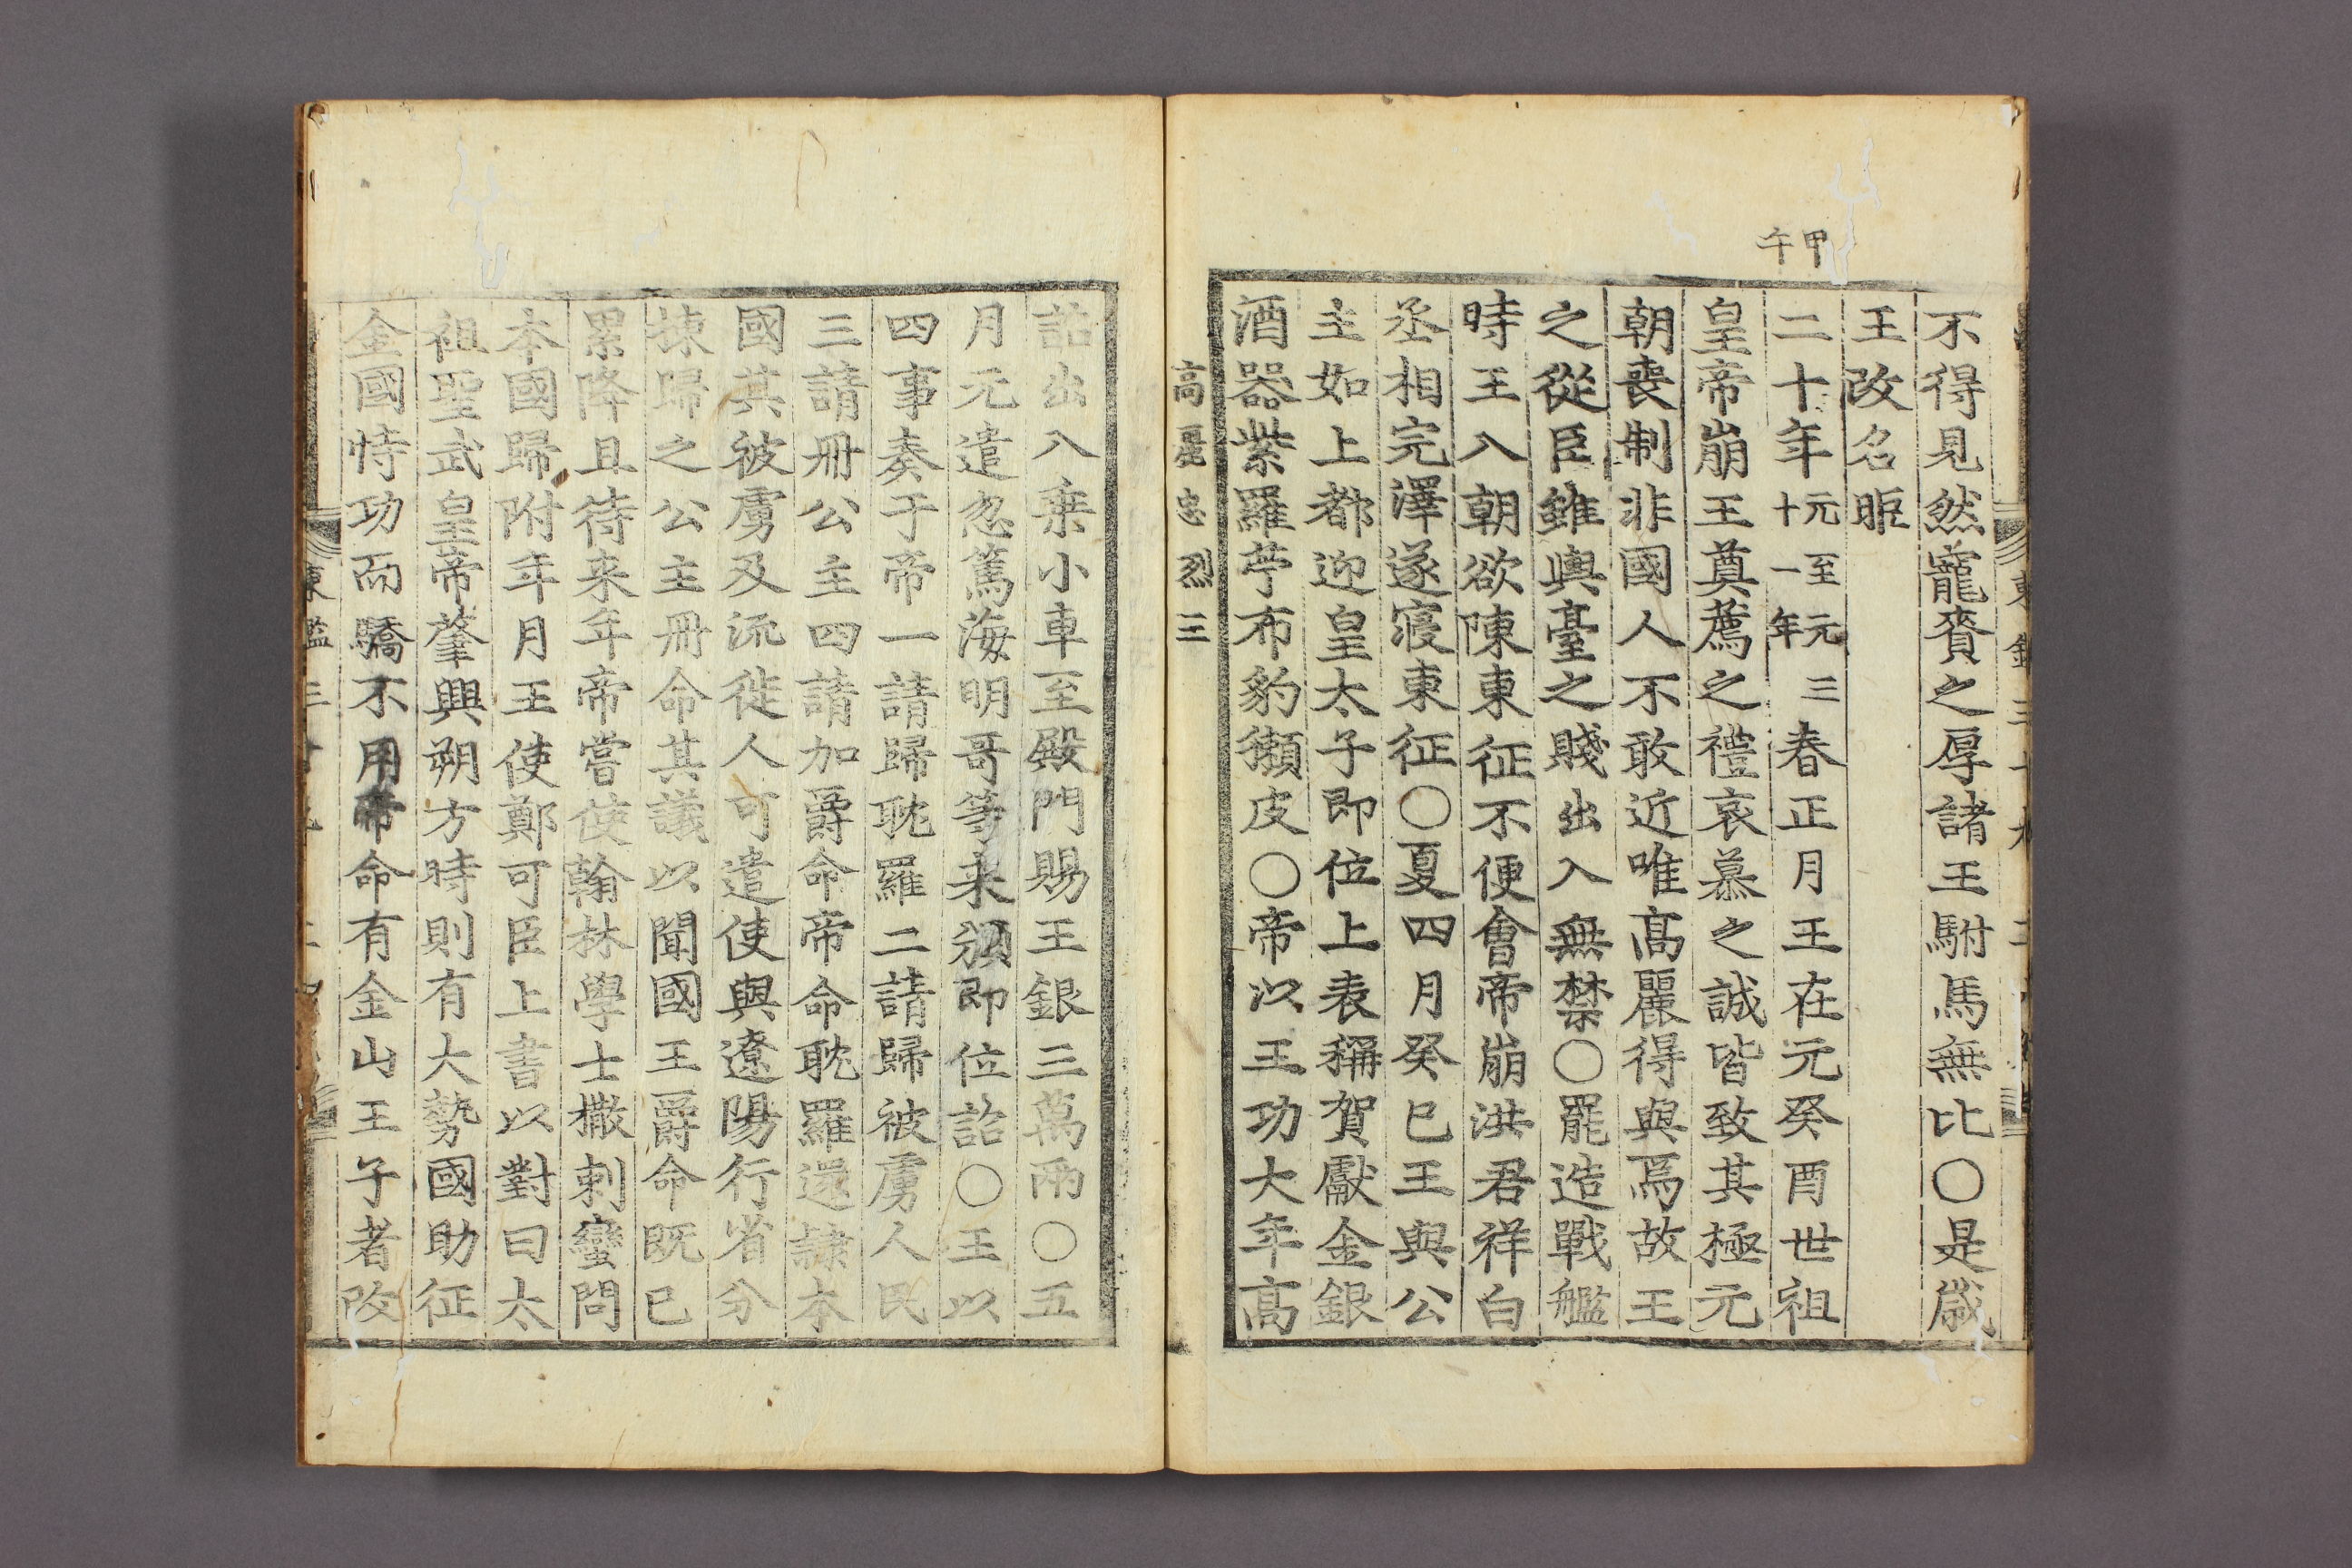 不得見然寵賚之厚諸王駙馬無比〇是歲
王改名昛
甲午
二十年元至元三十一年春正月王在元癸酉世祖
皇帝崩王奠薦之禮哀慕之誠皆致其極元
朝喪制非國人不敢近唯髙麗得與焉故王
之從臣雖輿臺之賤出入無禁〇罷造戰艦
時王入朝欲陳東征不便會帝崩洪君祥白
丞相完澤遂寢東征〇夏四月癸巳王與公
主如上都迎皇太子即位上表稱賀獻金銀
酒器紫羅苧布豹獺皮〇帝以王功大年髙
高麗忠烈王
詔出入乗小車至殿門賜王銀三萬兩〇五
月元遣忽篤海明哥等来頒即位詔〇王以
四事奏于帝一請歸耽羅二請歸被虜人民
三請冊公主四請加爵命帝命耽羅還隷本
國其被虜及流徙人可遣使與遼陽行省分
揀歸之公主冊命其議以聞國王爵命既已
累降且待来年帝嘗使翰林學士撒剌蠻問
本國歸附年月王使鄭可臣上書以對曰太
祖聖武皇帝肇興朔方時則有大勢國助征
金國恃功而驕不用帝命有金山王子者改